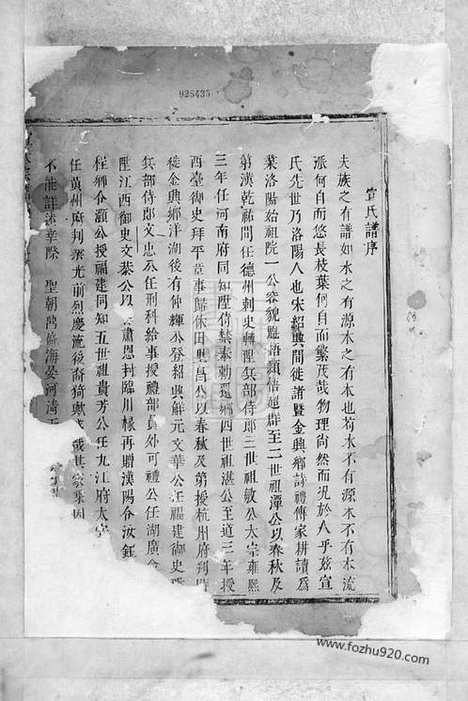 928435
宣氏譜序
夫族之有譜如水之有源木之有本也苟水不有源木不有本流
派何自而悠長枝葉何自而繁茂哉物理尚然而況於人乎茲宣
氏先世乃洛陽人也宋紹興間徙諸暨金興鄉詩禮傳家耕讀為
業洛陽始祖院一公容貌魁梧穎悟超群至二世祖潭公以春秋及
第漢乾祐間任德州刺史轉陞兵部侍郎三世祖敏公太宗雍熙
三年任河南府同知陞侍禁奉勅還鄉四世祖湛公至道三年授
西臺御史拜平章事歸休田里昌公以春秋及第授杭州府判
徙金興鄉洋湖後有仲輝公登紹興解元文華公任福建御史
兵部侍郎文忠公任刑科給事授禮部員外可禮公任湖廣
陞江西御史文榮公以 肅恩封臨川掾再贈漢陽令汝鈺
程鄉令灝公授福建同知五世祖貴芳公任九江府太
任黃州府判宗光前烈慶流後裔猗歟 哉其
不能詳述幸際 聖朝 海晏河清
www.fozhu920.com